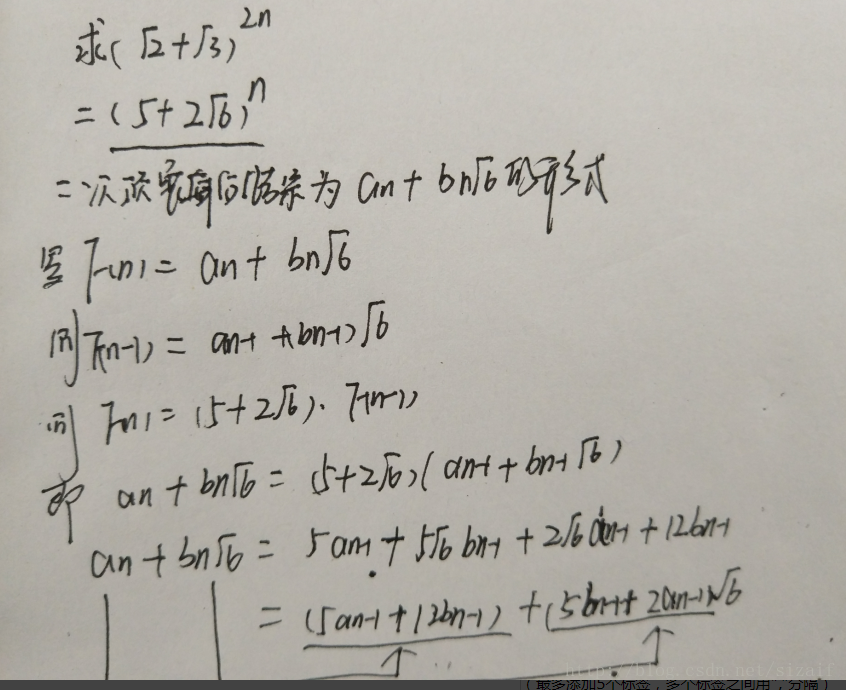 求(√2+√3)^2n
=(5+2√6)^n
=次项展开后结果为 an + bn√6 的形式
T(n) = an + bn√6
则 T(n-1) = an-1 + (bn-1)√6
则 T(n) = (5+2√6)·T(n-1)
即 an + bn√6 = (5+2√6)(an-1 + bn-1√6)
an + bn√6 = 5an-1 + 5√6bn-1 + 2√6an-1 + 12bn-1
= (5an-1+12bn-1) + (5bn-1+2an-1)√6
(最多添加5个标签，多个标签之间用","分隔)